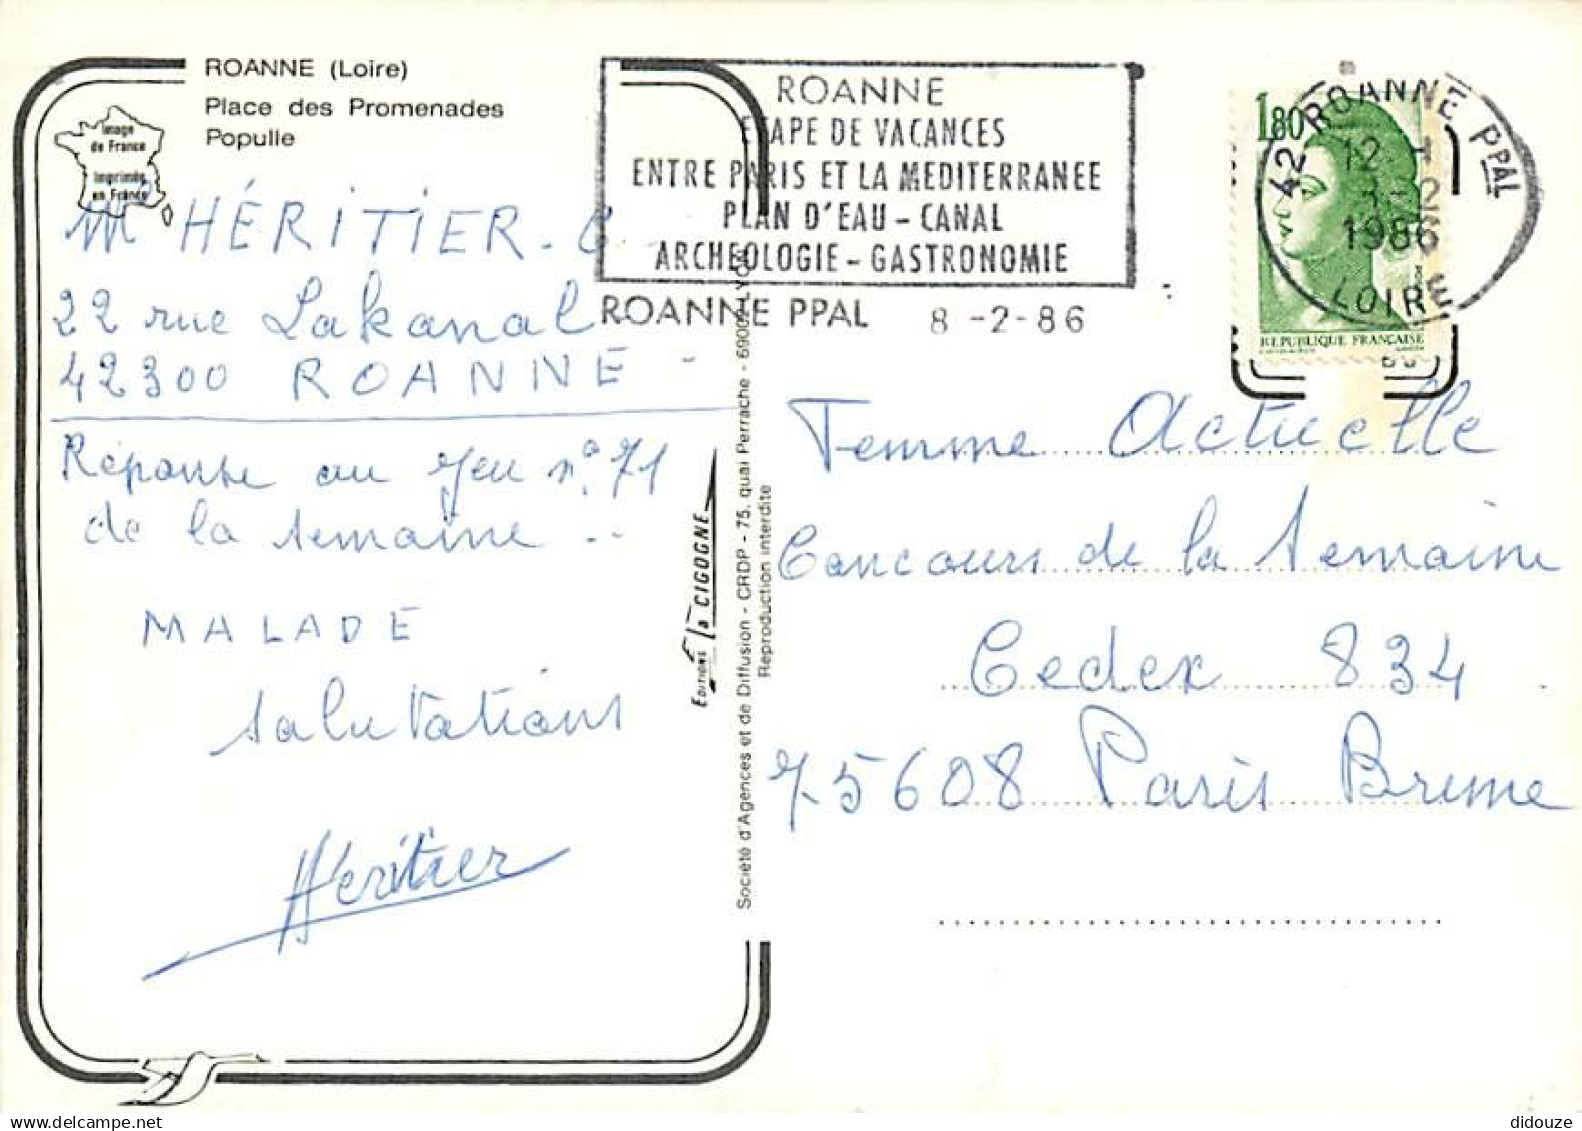 ROANNE (Loire)
Place des Promenades
Populle
Image
de France
Imprimée
en France
ROANNE
ETAPE DE VACANCES
ENTRE PARIS ET LA MEDITERRANEE
PLAN D'EAU - CANAL
ARCHEOLOGIE - GASTRONOMIE
ROANNE PPAL 8 -2- 86
1,80
42 ROANNE PPAL
12
1986
LOIRE
REPUBLIQUE FRANÇAISE
HÉRITIER. C
22 rue Lakanal
42300 ROANNE -
Réponse au jeu n° 71
de la semaine ..
MALADE
Salutations
Héritier
EDITIONS la CIGOGNE
Société d'Agences et de Diffusion - CRDP - 75, quai Perrache - 69002 LYON
Reproduction interdite
Femme Actuelle
Concours de la Semaine
Cedex 834
75608 Paris Brune
didouze